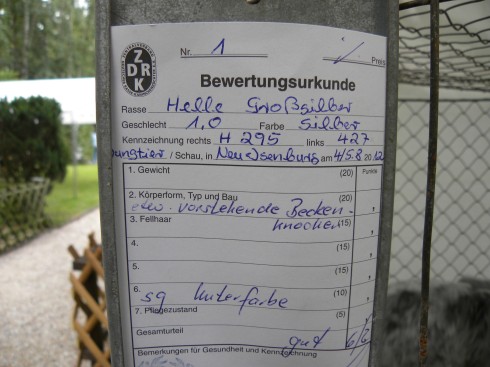 Nr. 1 Preis
ZDRK
Bewertungsurkunde
Rasse Helle Großsilber
Geschlecht 1,0 Farbe Silber
Kennzeichnung rechts H 295 links 427
ungtier / Schau, in Neu Isenburg am 4/5.8 2012
1. Gewicht (20) Punkte
2. Körperform, Typ und Bau (20)
etw. vorstehende Becken-
3. Fellhaar knochen (15)
4. (15)
5. (15)
6. (10)
sg Unterfarbe
7. Pflegezustand (5)
Gesamturteil gut
Bemerkungen für Gesundheit und Kennzeichnung